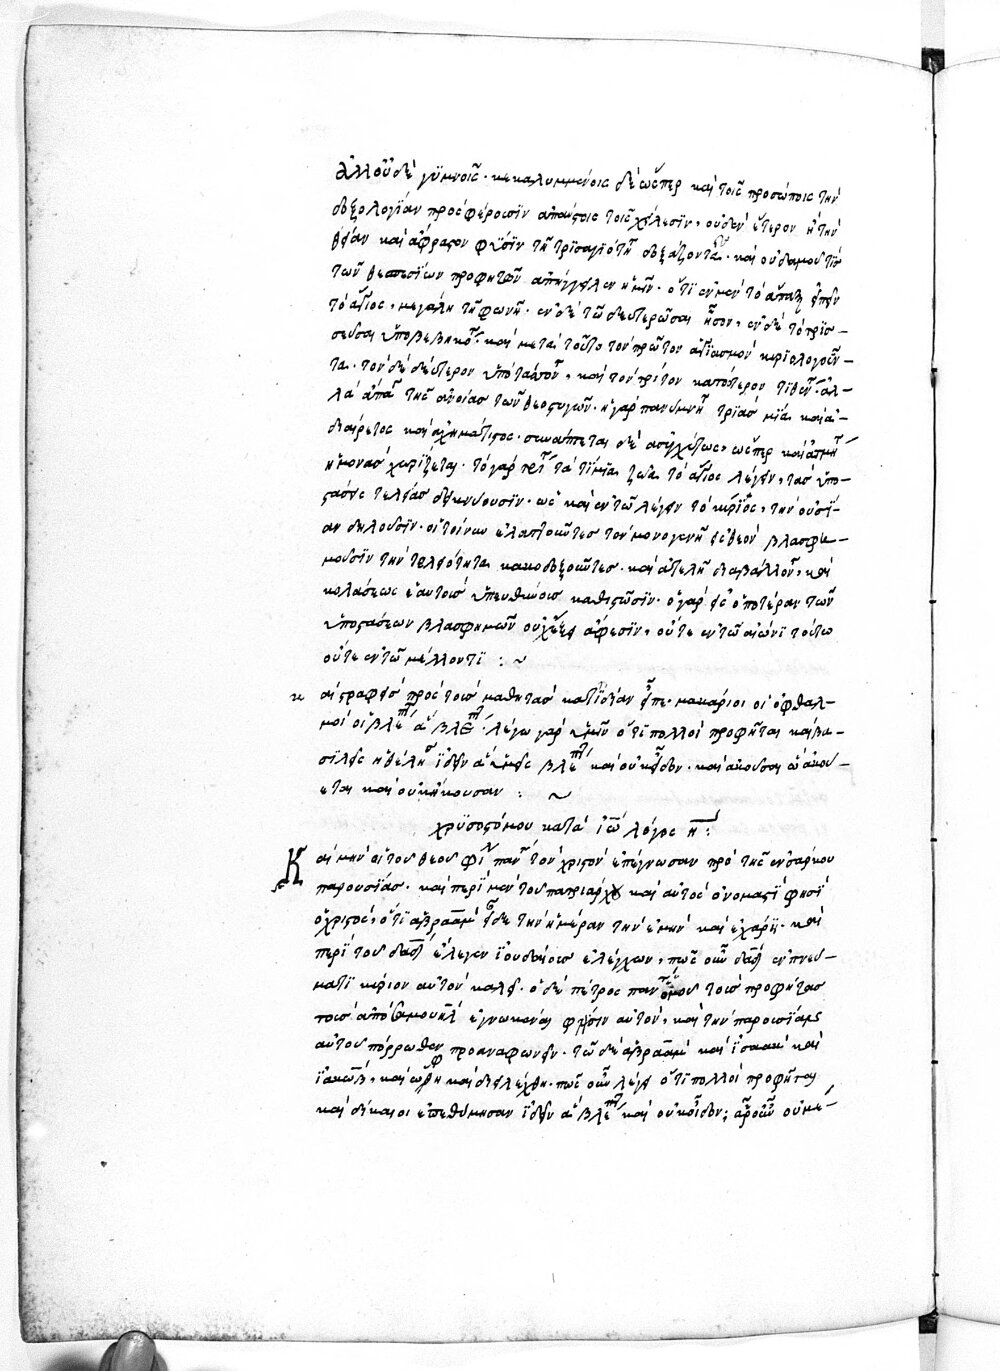 ἀλλ' οὐδὲ γυμνοῖς· κεκαλυμμένοις δὲ ὥσπερ καὶ τοῖς προσώποις τὴν
δοξολογίαν προσφέρουσιν ἀπαύστοις τοῖς χείλεσιν, οὐδὲν ἕτερον ἢ τὴν
θείαν καὶ ἄφραστον φύσιν τῇ τρισαγιότητι δοξάζοντα· καὶ οὐδαμοῦ τίς
τῶν θεσπεσίων προφητῶν ἀπήγγειλεν ἡμῖν· ὅτι ἐν μὲν τὸ ἅπαξ εἰπεῖν
τὸ ἅγιος, μεγάλη τῇ φωνῇ· ἐν δὲ τῷ δευτερῶσαι ἧσσον, ἐν δὲ τὸ τρισ-
σεῦσαι ὑποβεβηκό· καὶ μετὰ τοῦτο τὸν πρῶτον ἁγιασμὸν κυριολογοῦν-
τα· τὸν δὲ δεύτερον ὑποτάττον, καὶ τὸν τρίτον κατώτερον τιθέν· ἀλ-
λὰ ἄπα τῆς ἀνοίας τῶν θεοστυγῶν· ἡ γὰρ πανύμνη τριὰς μία καὶ ἀ-
διαίρετος καὶ ἀσχημάτιστος· συνάπτεται δὲ ἀσυγχύτως, ὥσπερ καὶ ἀτμή
ἡ μονὰς χωρίζεται· τὸ γὰρ τρὶ τὰ τίμια ζῶα τὸ ἅγιος λέγειν, τὰς ὑπο-
στάσεις τελείας δεικνύουσιν· ὡς καὶ ἐν τῷ λέγειν τὸ κύριος, τὴν οὐσί-
αν δηλοῦσιν· οἱ τοίνυν ἐλαττοῦντες τὸν μονογενῆ θεὸν βλασφη-
μοῦσιν τὴν τελειότητα κακοδοξοῦντες· καὶ ἀτελῆ διαβάλλον, καὶ
κολάσεως ἑαυτοὺς ὑπευθύνους καθιστῶσιν· ὁ γὰρ εἰς ὁποτέραν τῶν
ὑποστάσεων βλασφημῶν οὐχ ἕξει ἄφεσιν, οὔτε ἐν τῷ αἰῶνι τούτω
οὔτε ἐν τῷ μέλλοντι : ~
κ αὶ στραφεὶς πρὸς τοὺς μαθητὰς κατιδίαν εἶπε· μακάριοι οἱ ὀφθαλ-
μοὶ οἱ βλέπ ἃ βλέπ· λέγω γὰρ ὑμῖν ὅτι πολλοὶ προφῆται καὶ βα-
σιλεῖς ἠθέλη ἰδεῖν ἃ ὑμεῖς βλέπ καὶ οὐκ εἶδον· καὶ ἀκοῦσαι ὧ ἀκού-
εται καὶ οὐκ ἤκουσαν : ~
χρυσοστόμου κατὰ ἰω λόγος η :
Κ αὶ μὴν οἱ τοῦ θεοῦ φί παν τὸν χριστὸν ἐπέγνωσαν πρὸ τῆς ἐνσάρκου
παρουσίας· καὶ περὶ μὲν τοῦ πατριάρχου καὶ αὐτὸς ὀνομαστὶ φησὶ
ὁ χριστός, ὅτι ἀβραὰμ εἶδε τὴν ἡμέραν τὴν ἐμὴν καὶ ἐχάρη· καὶ
περὶ τοῦ δαδ ἔλεγεν ἰουδαίοις ἐλέγχων, πῶς οὖν δαδ ἐν πνεύ-
ματι κύριον αὐτὸν καλεῖ· ὁ δὲ πέτρος παν ὁμοῦ τοὺς προφήτας
τοὺς ἀπὸ σαμουὴλ ἐγνωκέναι φησὶν αὐτόν, καὶ τὴν παρουσίαν
αὐτοῦ πόρρωθεν προαναφωνεῖν· τῷ δὲ ἀβραὰμ καὶ ἰσαὰκ καὶ
ἰακώβ, καὶ ὤφθη καὶ διελέχθη· πῶς οὖν λέγει ὅτι πολλοὶ προφῆται
καὶ δίκαιοι ἐπεθύμησαν ἰδεῖν ἃ βλέπ καὶ οὐκ εἶδον; ἆρ' οὖν οὐ μὲ